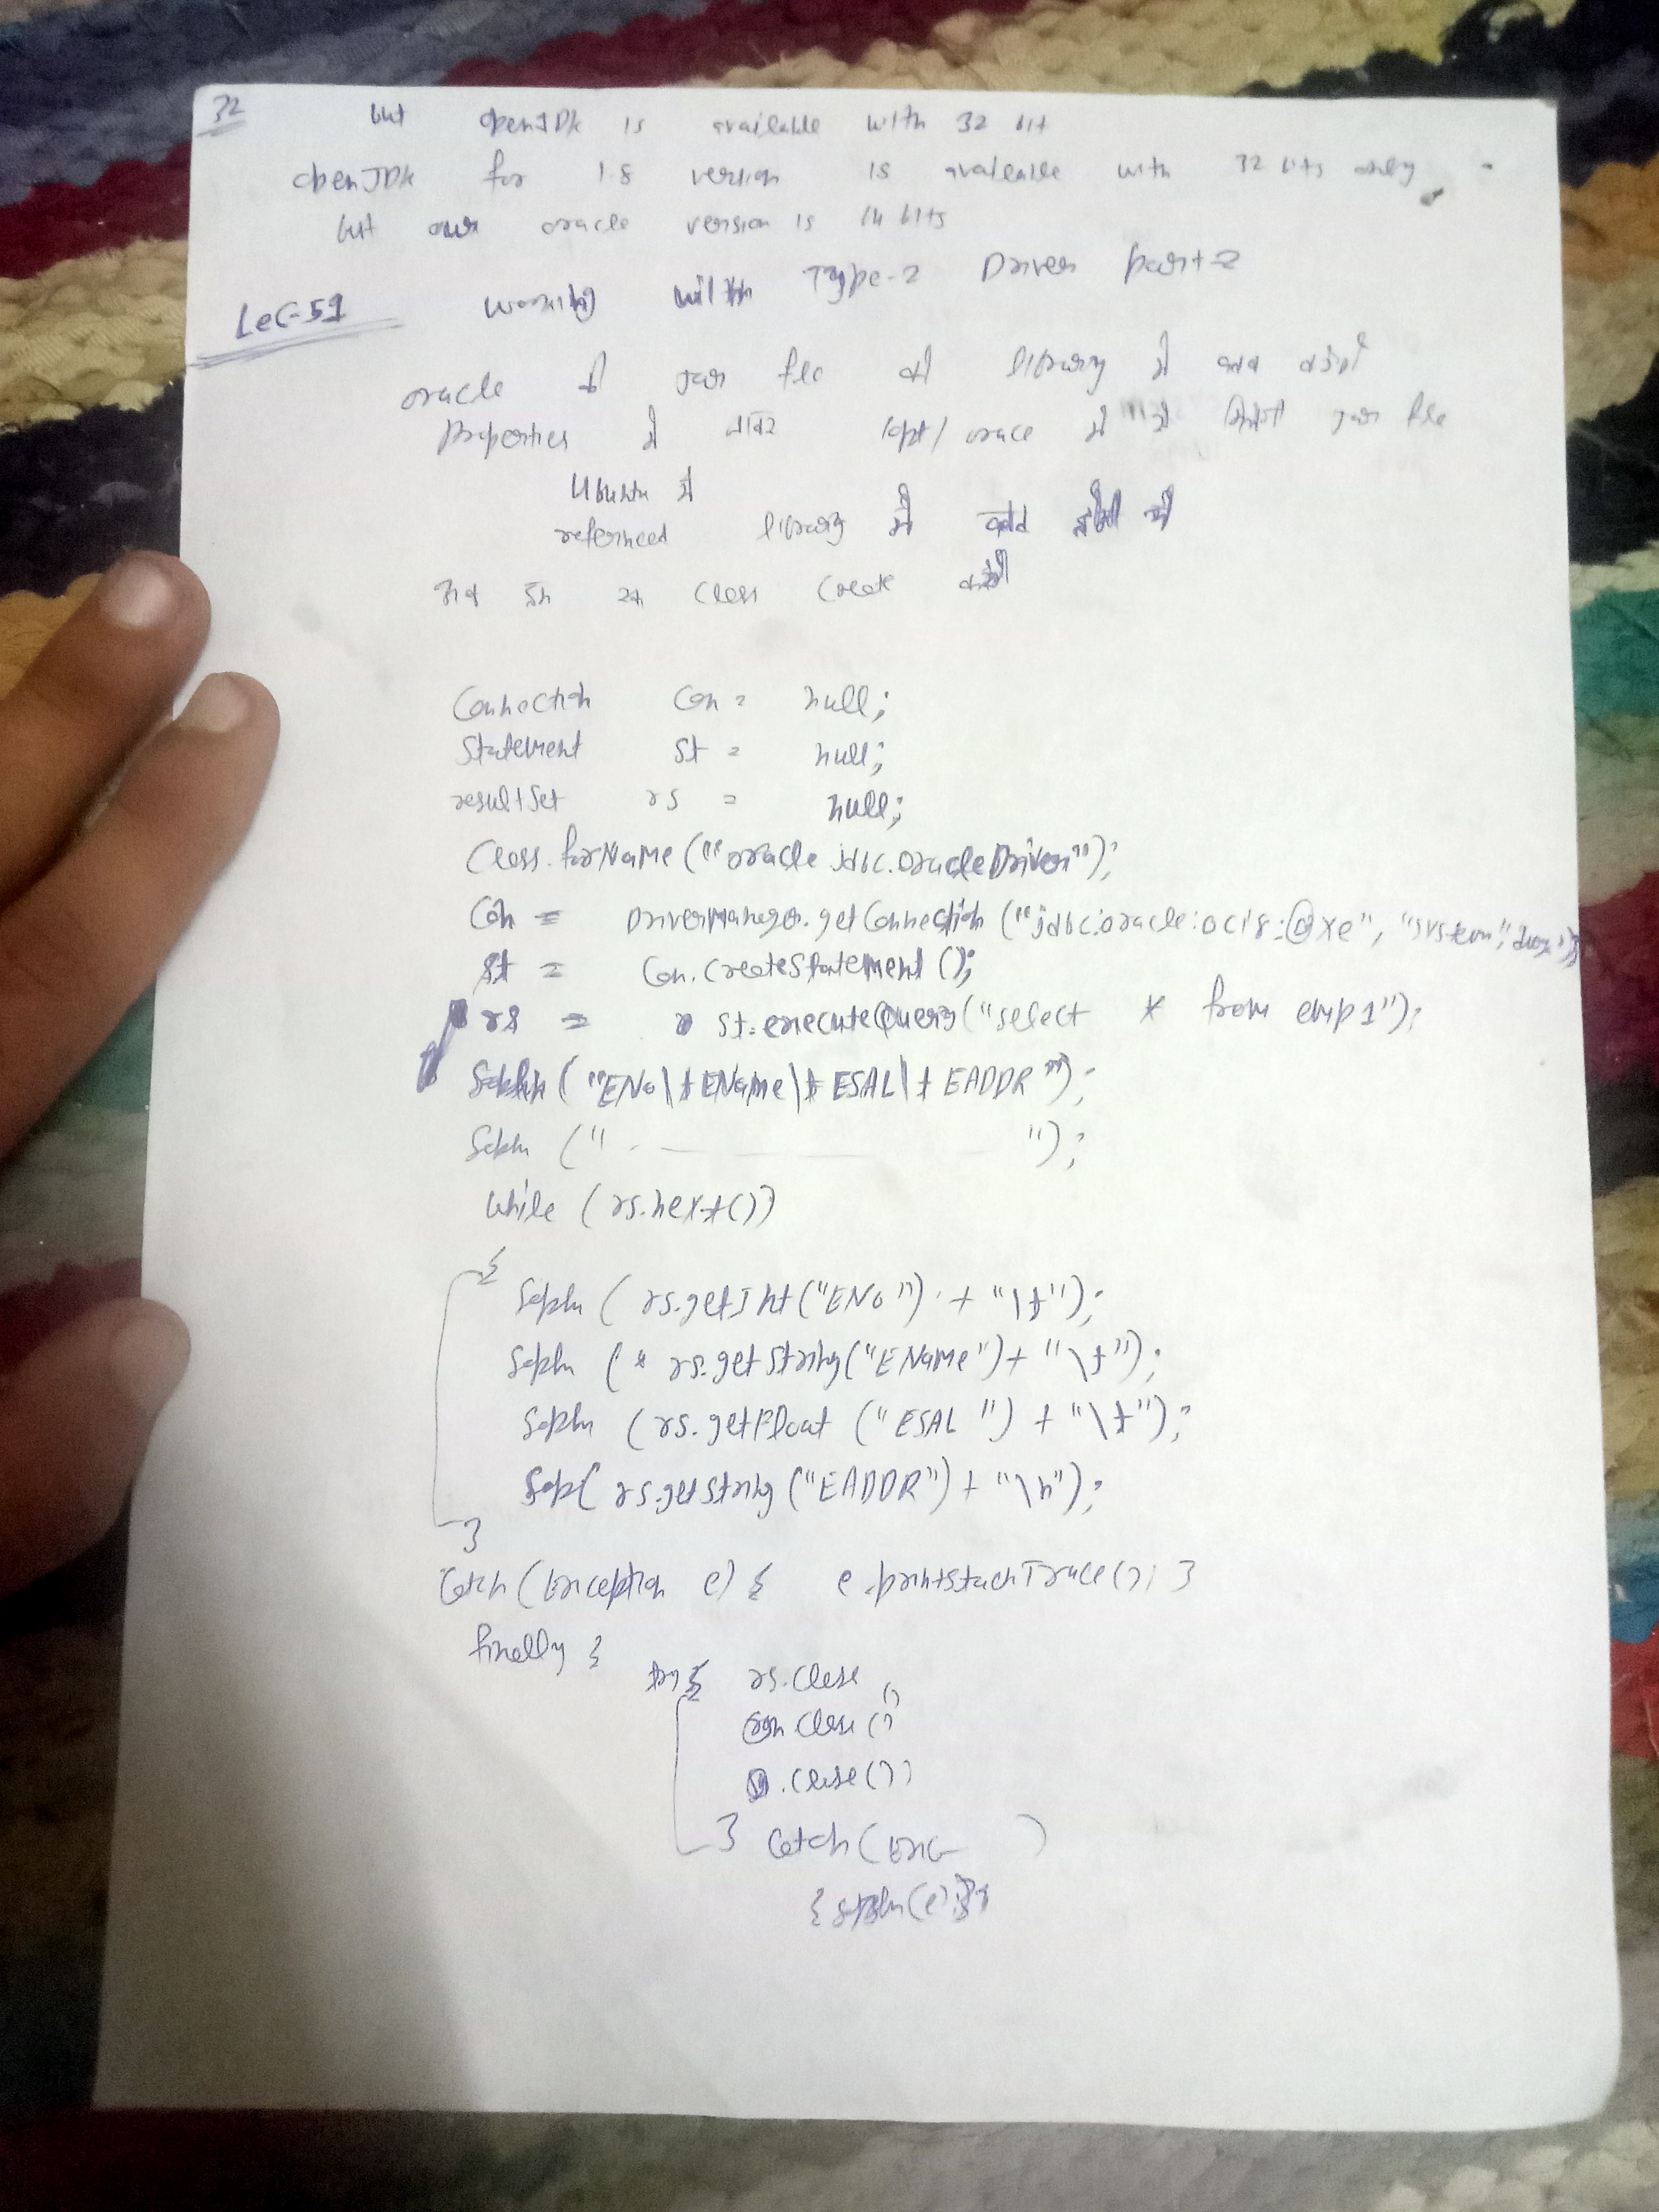 32 but openJDK is available with 32 bit
openJDK for 1.8 version is available with 32 bits only
but our oracle version is 14 bits
Lec-51 working with Type-2 Driver part-2
oracle की jar file को library में add करेंगे
Properties में जाकर /opt/orace में से jar file
Ubuntu में
refernced library में
अब हम एक class create करेंगे
Connection con = null;
Statement st = null;
resultSet rs = null;
Class.forName("oracle.jdbc.OracleDriver");
Con = DriverManager.getConnection("jdbc:oracle:oci8:@xe", "system",
st = Con.CreateStatement();
rs = st.executeQuery("select * from emp1");
Sopln("ENo\tEName\tESAL\tEADDR");
Sopln ("- — — — —");
while (rs.next())
{
Sopln (rs.getInt("ENo") + "\t");
Sopln (rs.getString("EName") + "\t");
Sopln (rs.getFloat ("ESAL") + "\t");
Sop( rs.getString ("EADDR") + "\n");
}
Catch (Exception e) { e.printStackTrace(); }
finally {
try { rs.close ()
con.close ()
.close())
} Catch (Exc )
{ sopln(e);